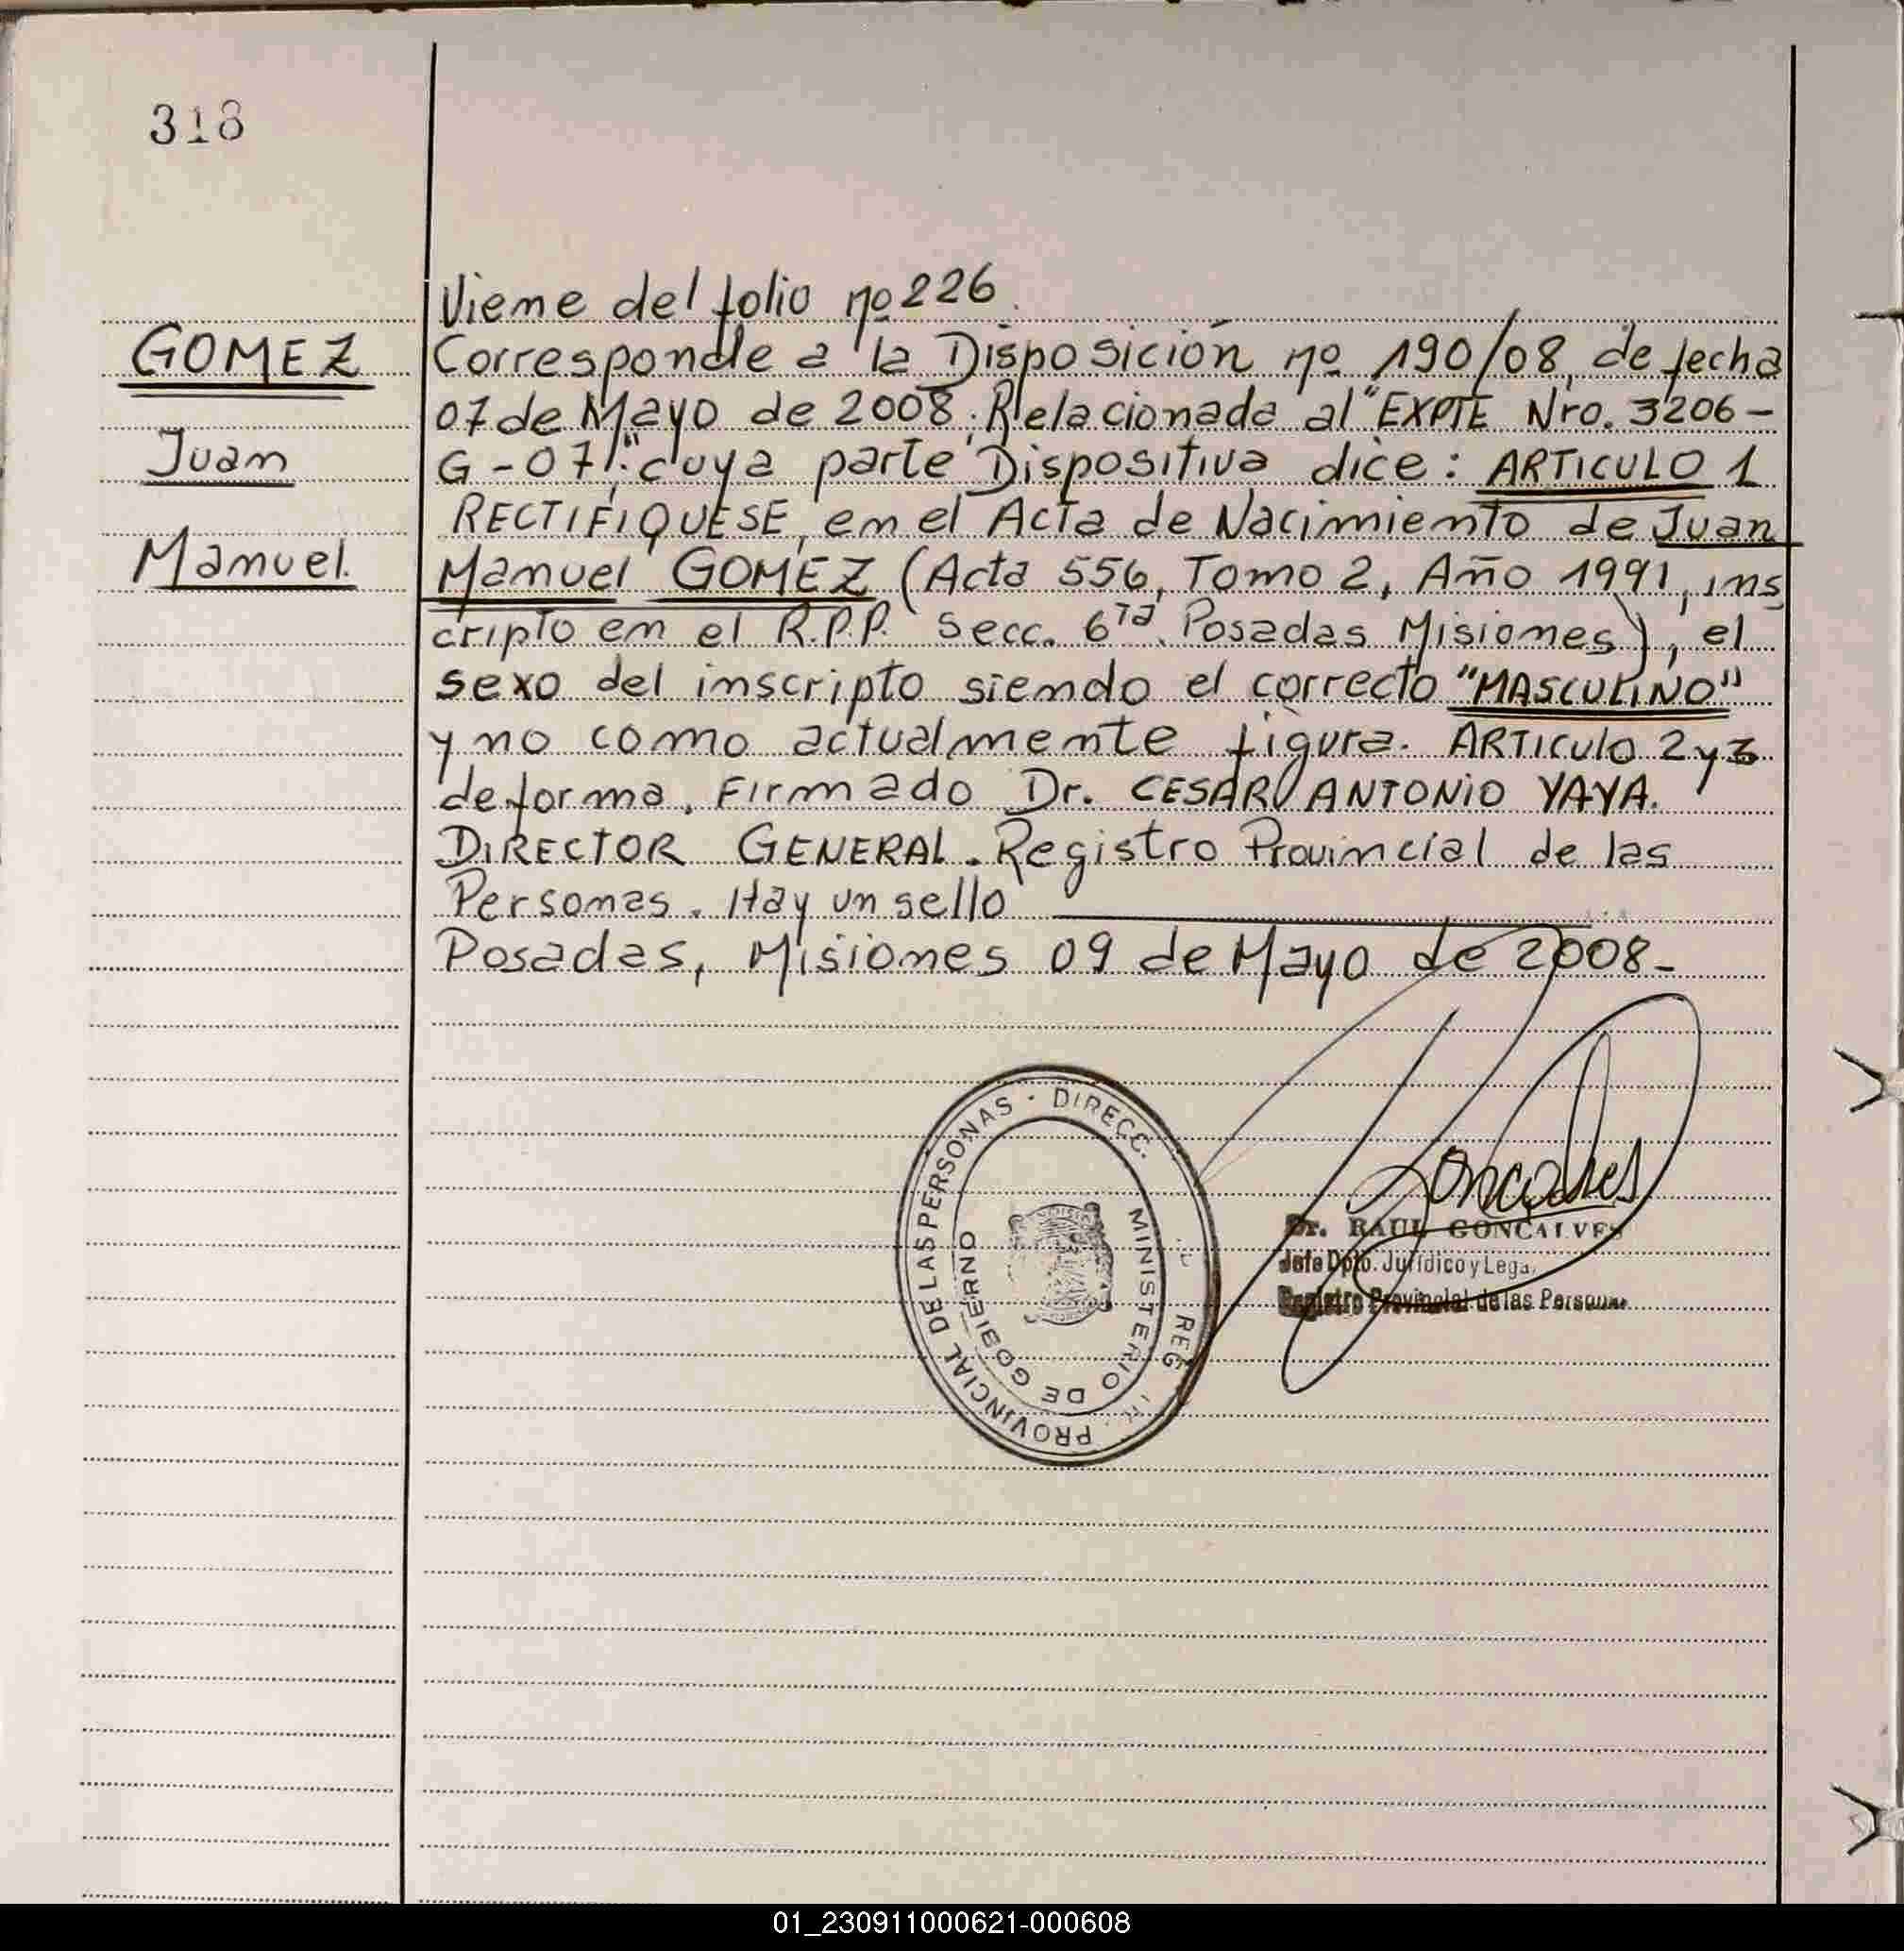 318
Viene del folio nº 226.
GOMEZ
Corresponde a la Disposición nº 190/08, de fecha
07 de Mayo de 2008. Relacionada al "EXPTE Nro. 3206-
Juan
G-07", cuya parte Dispositiva dice: ARTICULO 1
RECTIFIQUESE, en el Acta de Nacimiento de Juan
Manuel.
Manuel GOMEZ (Acta 556, Tomo 2, Año 1991, ins
cripto en el R.P.P. Secc. 6ta. Posadas Misiones), el
sexo del inscripto siendo el correcto "MASCULINO"
y no como actualmente figura. ARTICULO 2 y 3
de forma. Firmado Dr. CESAR ANTONIO YAYA.
DIRECTOR GENERAL. Registro Provincial de las
Personas. Hay un sello
Posadas, Misiones 09 de Mayo de 2008-
DIRECC. REG PROVINCIAL DE LAS PERSONAS
MINISTERIO DE GOBIERNO
Goncalves
Dr. RAUL GONCALVES
Jefe Dpto. Jurídico y Lega
Registro Provincial de las Persona
01_230911000621-000608